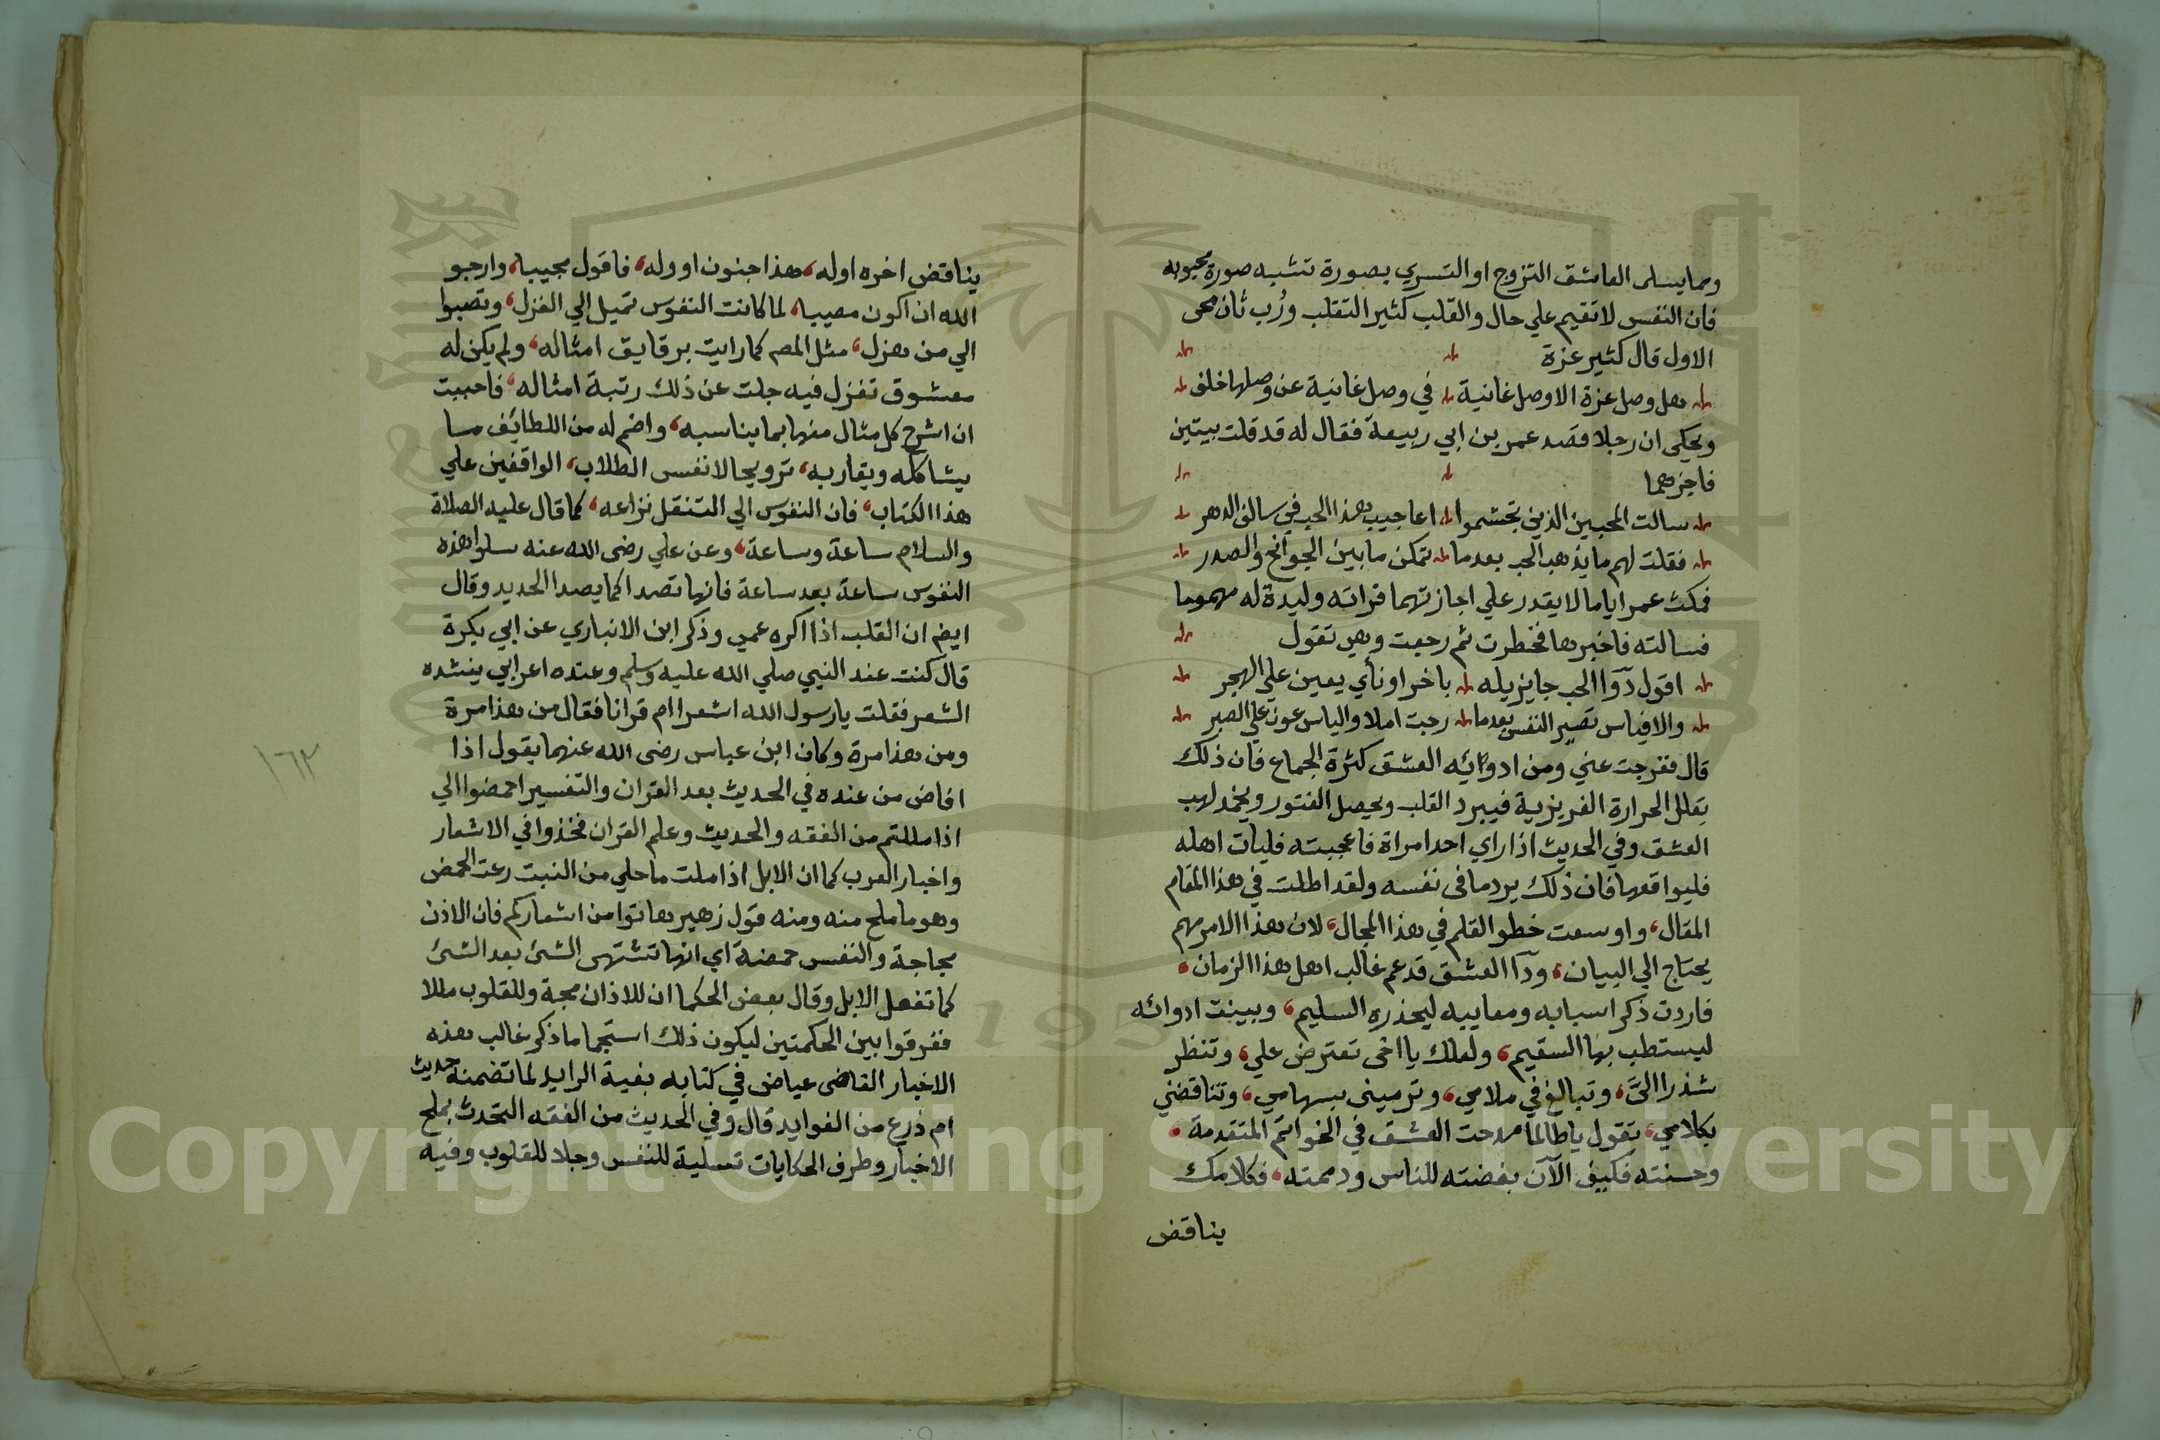 ومما يسلى العاشق التزوج او التسري بصورة تشبه صورة محبوبه
فان النفس لا تقيم علي حال والقلب كثير التقلب ورُب ثان محى
الاول قال كثير عزة
هل وصل عزة الا وصل غانية في وصل غانية عن وصلها خلف
ويحكى ان رجلا قصد عمر بن ابي ربيعة فقال له قد قلت بيتين
فاجزهما
سالت المحبين الذين تجشموا اعاجيب هذا الحب في سالف الدهر
فقلت لهم ما يذهب الحب بعدما تمكن ما بين الجوانح والصدر
فمكث عمر اياما لا يقدر علي اجازتهما فراته وليدة له مهموما
فسالته فاخبرها فخطرت ثم رجعت وهي تقول
اقول دوآ الحب جا يزيله باخر او نأي يعين علي الهجر
والا فياس تصير النفس بعدما رجت املا والياس عون علي الصبر
قال ففرجت عني ومن ادوائه العشق كثرة الجماع فان ذلك
يقلل الحرارة الغريزية فيبرد القلب ويحصل الفتور ويخمد لهب
العشق وفي الحديث اذا راي احد امراة فاعجبته فليات اهله
فليواقعها فان ذلك يرد ما فى نفسه ولقد اطلت في هذا المقام
المقال، واوسعت خطو القلم في هذا المجال، لان هذا الامر مهم
يحتاج الي البيان، ودآ العشق قد عم غالب اهل هذا الزمان
فاردت ذكر اسبابه ومعايبه ليحذره السليم، وبينت ادوائه
ليستطب بها السقيم، ولعلك يا اخى تعترض علي، وتنظر
شذرا الىّ، وتبالغ في ملامي، وترميني بسهامي، وتناقضني
بكلامي، تقول يا طالما مدحت العشق في الخواتم المتقدمة
وحسنته فكيف الآن بغضته للناس وذممته فكلامك
يناقض
يناقض اخره اوله، هذا جنون او وله، فاقول مجيبا، وارجو
الله ان اكون مصيبا، لما كانت النفوس تميل الي الغزل، وتصبوا
الي من هزل، مثل المصـ كما رايت برقايق امثاله، ولم يكن له
معشوق تغزل فيه جلت عن ذلك رتبة امثاله، فاحببت
ان اشرح كل مثال منها بما يناسبه، واضم له من اللطائف ما
يشاكله ويقاربه، ترويحا لانفس الطلاب، الواقفين علي
هذا الكتاب، فان النفوس الي التنقل نزاعه، كما قال عليه الصلاة
والسلام ساعة وساعة، وعن علي رضى الله عنه سلوا هذه
النفوس ساعة بعد ساعة فانها تصدا كما يصدا الحديد وقال
ايضـ ان القلب اذا اكره عمي وذكر ابن الانباري عن ابي بكرة
قال كنت عند النبي صلي الله عليه وسلم وعنده اعرابي ينشده
الشعر فقلت يا رسول الله اشعرا ام قرانا فقال من هذا مرة
ومن هذا مرة وكان ابن عباس رضى الله عنهما يقول اذا
افاض من عنده في الحديث بعد القران والتفسير احمضوا الي
اذا مللتم من الفقه والحديث وعلم القران فخذوا في الاشعار
واخبار العرب كما ان الابل اذا ملت ما حلي من النبت رعت الحمض
وهو ما ملح منه ومنه قول زهير هاتوا من اشعاركم فان الاذن
مجاجة والنفس حمضة اي انها تشتهى الشئ بعد الشئ
كما تفعل الابل وقال بعض الحكما ان للاذان مجة وللقلوب مللا
ففرقوا بين الحكمتين ليكون ذلك استجماما ذكر غالب هذه
الاخبار القاضى عياض في كتابه بغية الرايد لما تضمنه حديث
ام ذرع من الفوايد قال وفي الحديث من الفقه التحدث بملح
الاخبار وطرف الحكايات تسلية للنفس وجلا للقلوب وفيه
١٦٢
Copyright © King Saud University
1957